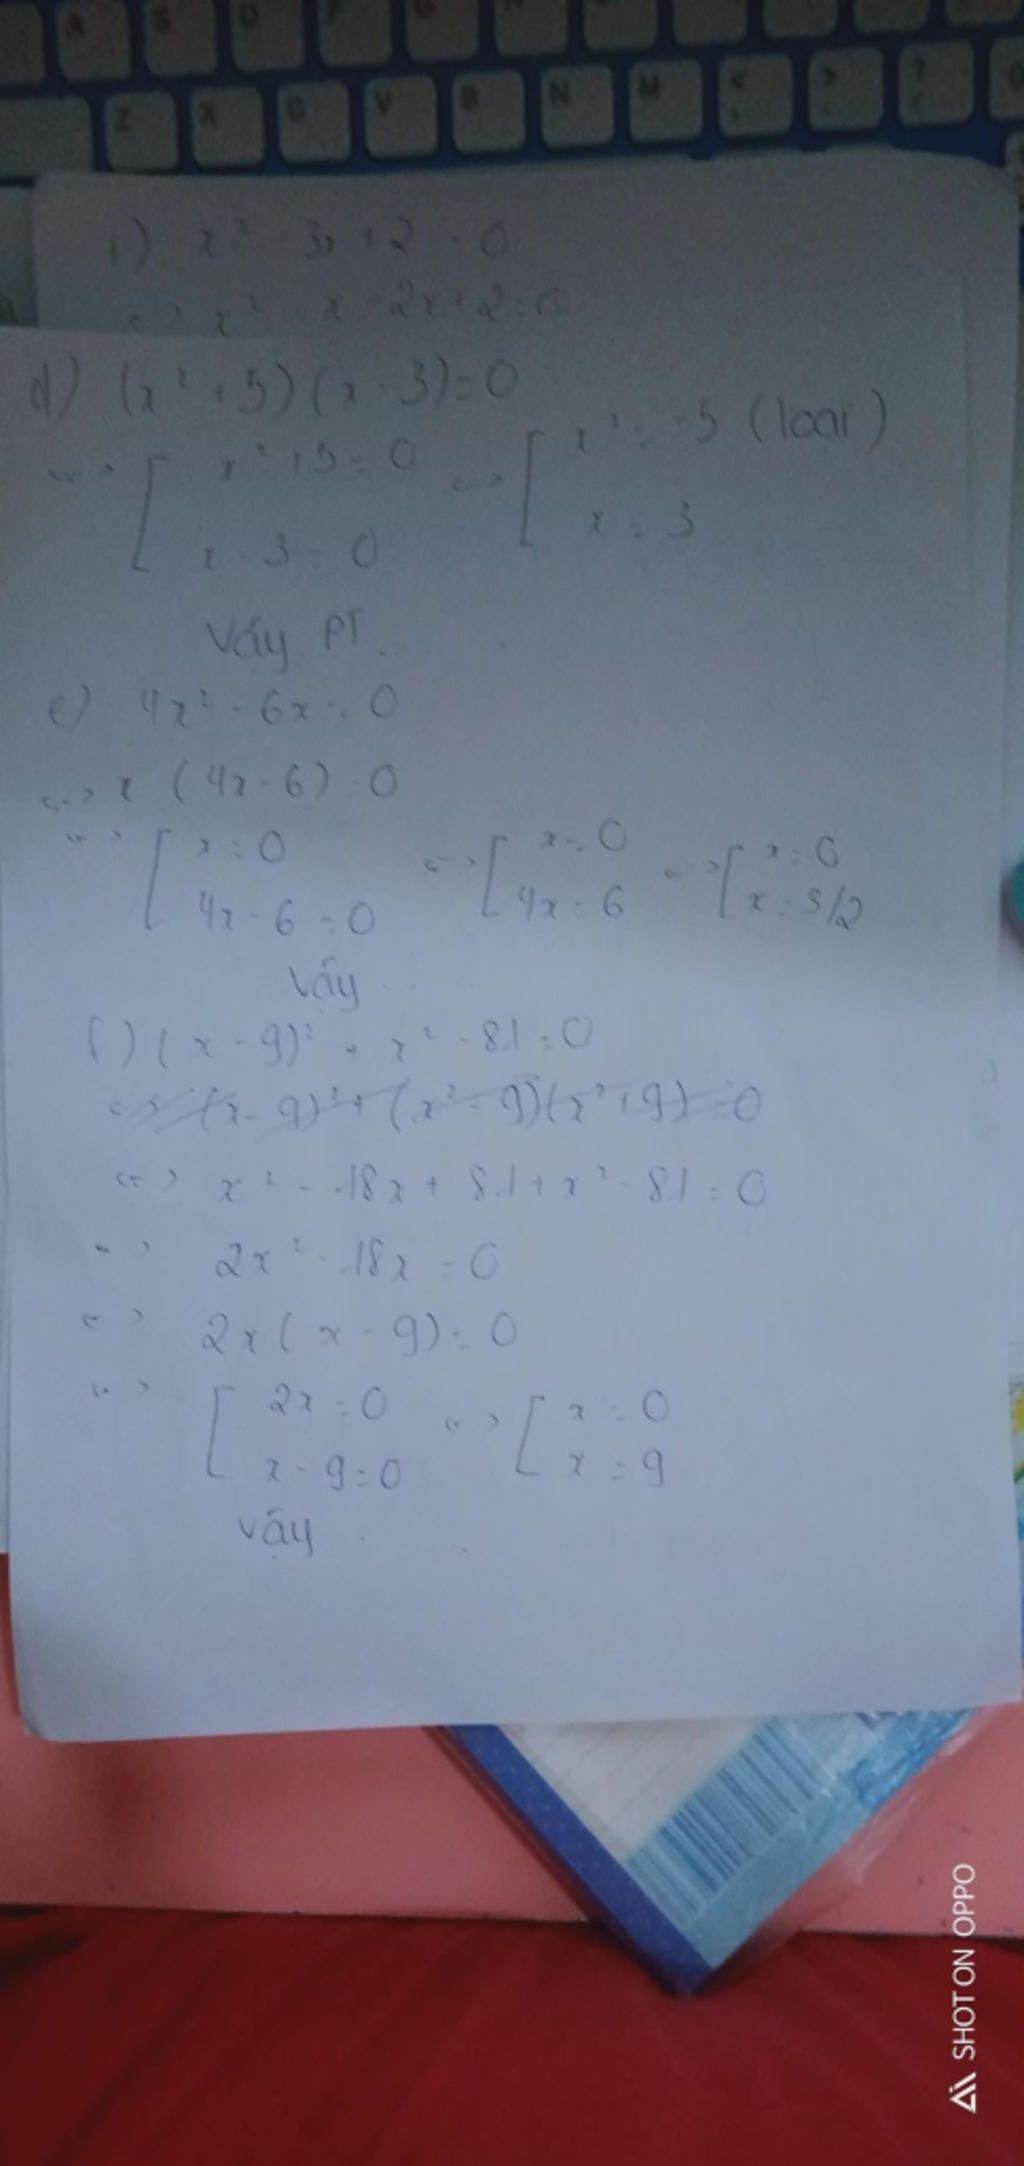 A S D F G H
Z X C V B N M < , > . ? /
i) x² - 3x + 2 = 0
<=> x² - x - 2x + 2 = 0
d) (x² + 5)(x - 3) = 0
<=> [ x² + 5 = 0 <=> [ x² = -5 (loại)
x - 3 = 0 x = 3
Vậy PT . . .
e) 4x² - 6x = 0
<=> x (4x - 6) = 0
<=> [ x = 0 <=> [ x = 0 <=> [ x = 0
4x - 6 = 0 4x = 6 x = 3/2
Vậy . . .
f) (x - 9)² + x² - 81 = 0
<=> (x - 9)² + (x² - 9)(x² + 9) = 0
<=> x² - 18x + 81 + x² - 81 = 0
<=> 2x² - 18x = 0
<=> 2x (x - 9) = 0
<=> [ 2x = 0 <=> [ x = 0
x - 9 = 0 x = 9
Vậy . .
SHOT ON OPPO